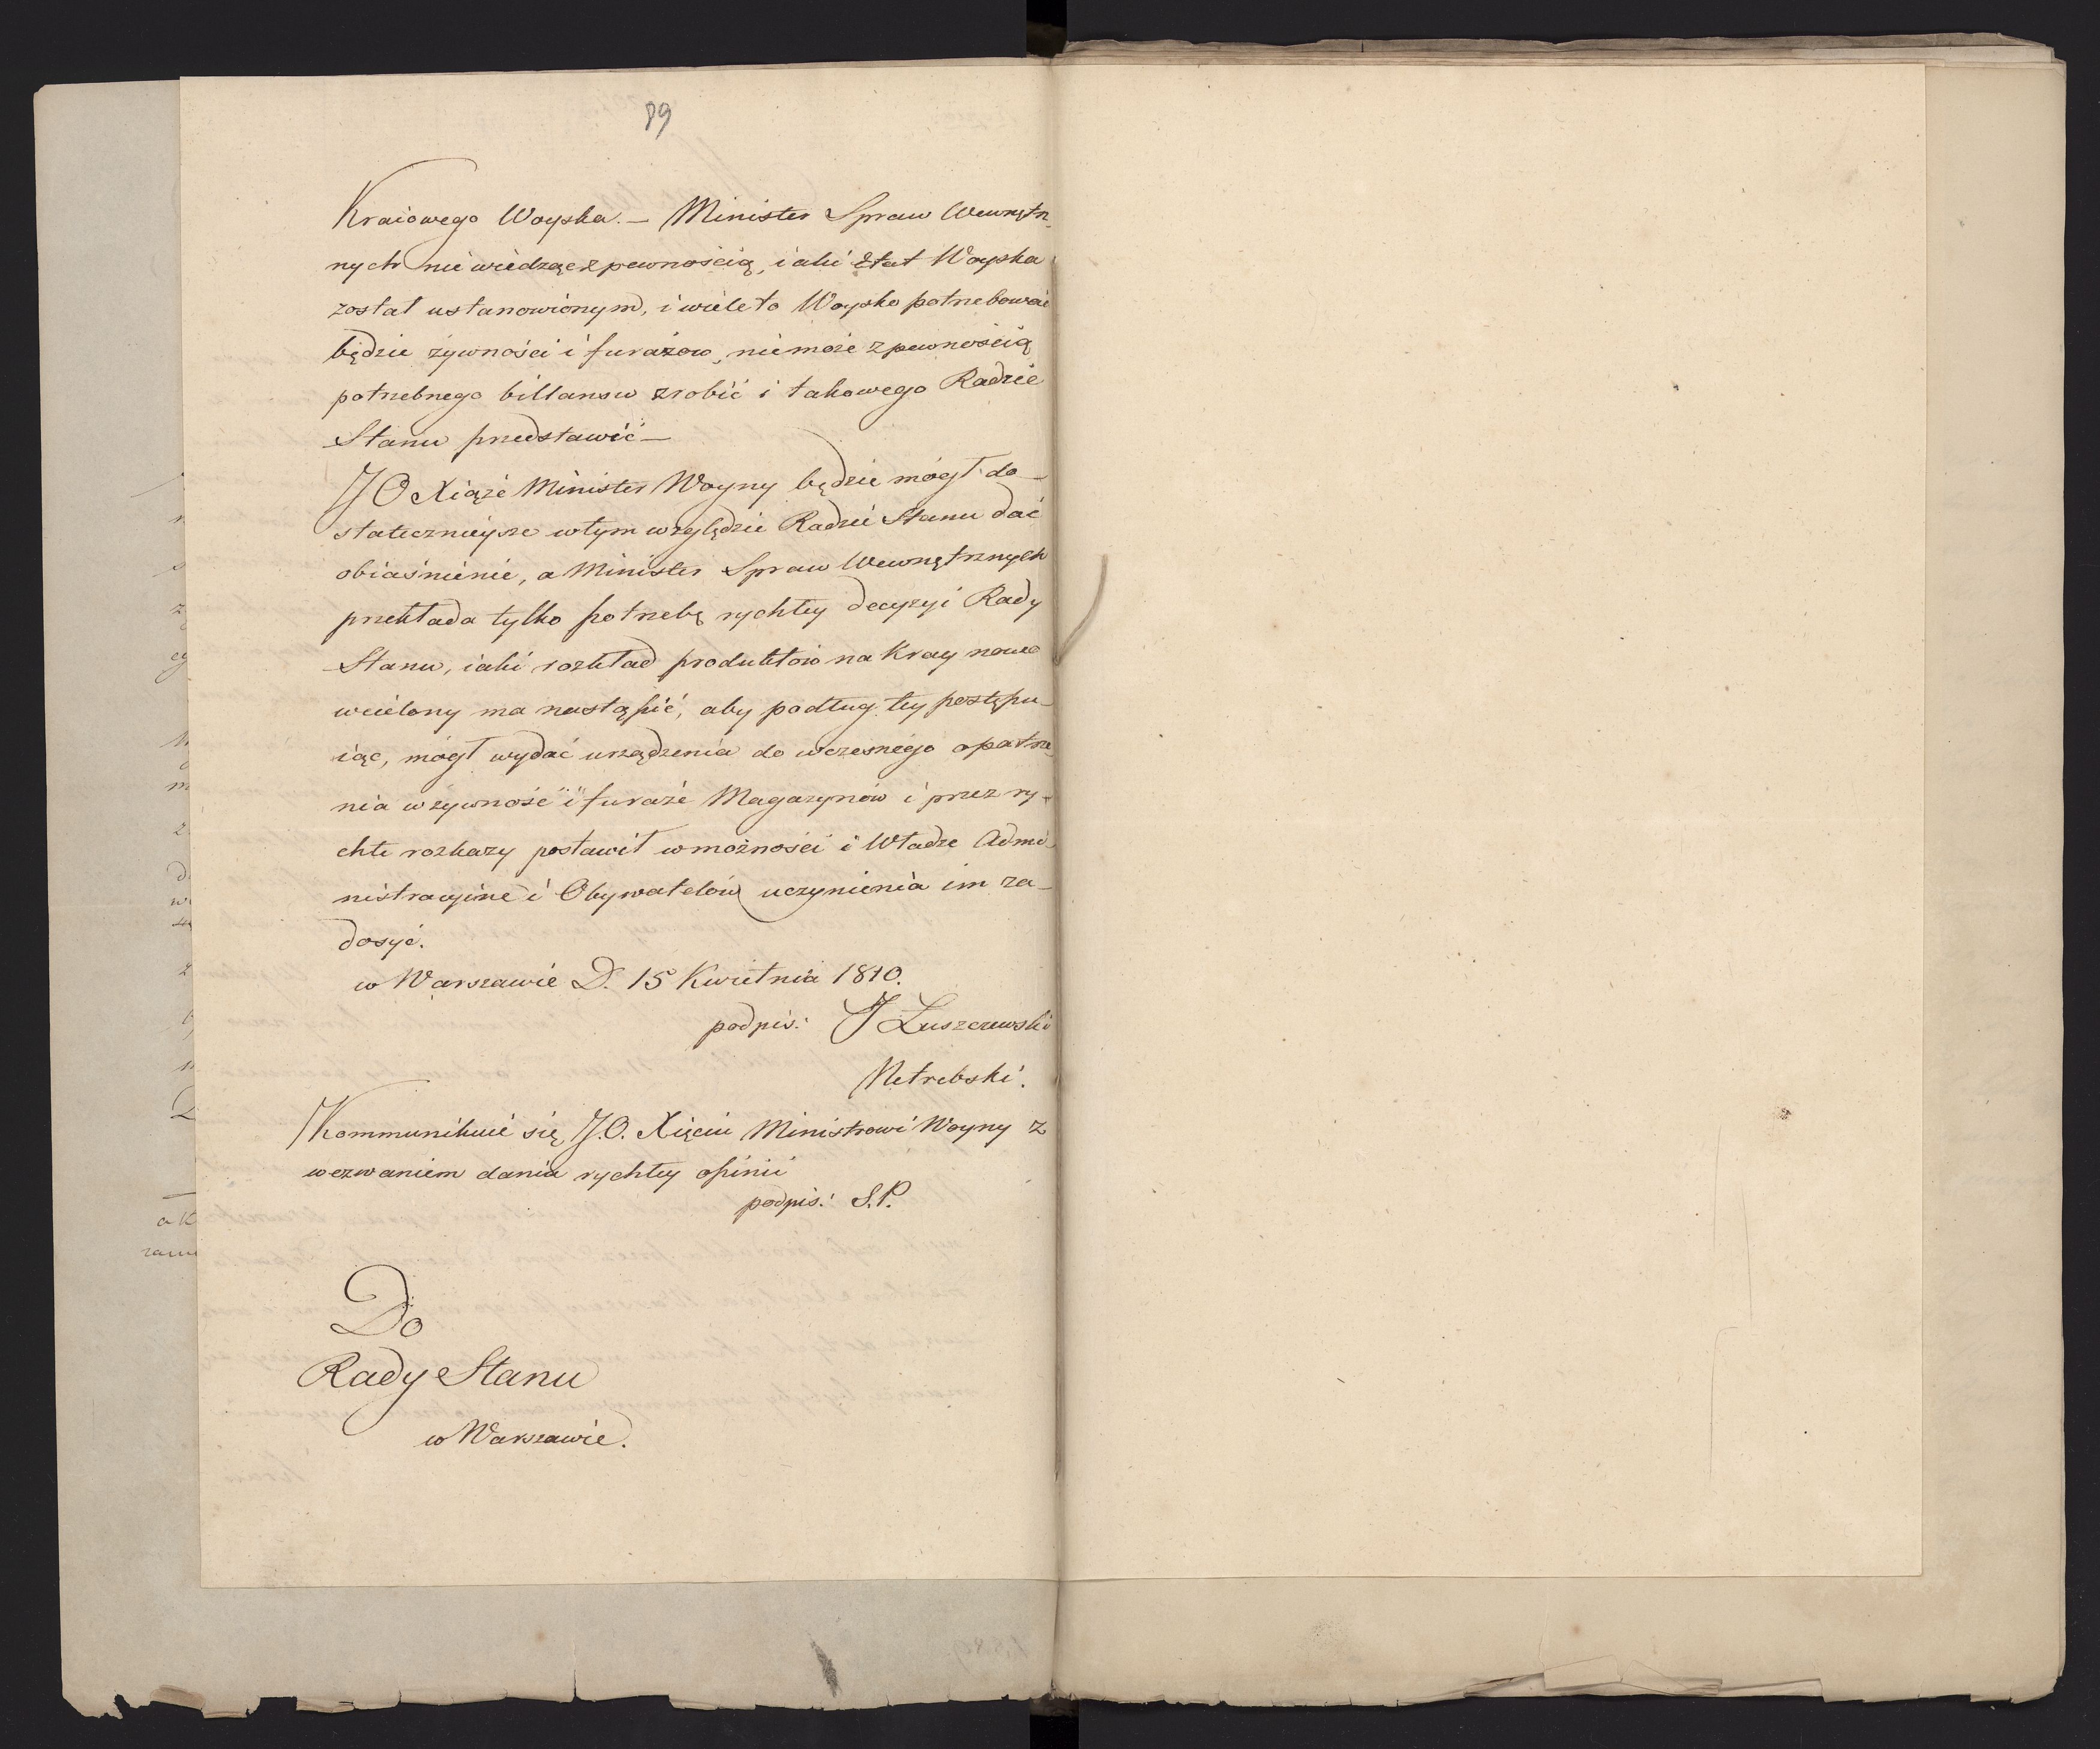 89
Kraiowego Woyska. — Minister Spraw Wewnętrz-
nych nie wiedząc z pewnością, iaki Etat Woyska
został ustanowionym, i wiele to Woysko potrzebować
będzie żywności i furażow, nie może z pewnością
potrzebnego billansu zrobić i takowego Radzie
Stanu przedstawić —
JO Xiąże Minister Woyny będzie mógł do-
stateczniejsze w tym względzie Radzie Stanu dać
obiaśnienie, a Minister Spraw Wewnętrznych
przekłada tylko potrzebę rychłey decyzyi Rady
Stanu, iaki rozkład produktów na Kray nowo
wcielony ma nastąpić, aby podług tey postępu-
iąc, mógł wydać urządzenia do wczesnego opatrze-
nia w żywność i furaże Magazynów i przez ry-
chłe rozkazy postawił w możności i Władze Admi-
nistracyine i Obywatelów uczynienia im za-
dosyć.
w Warszawie D. 15 Kwietnia 1810.
podpis: J Łuszczewski
Netrebski.
Kommunikuie się J.O. Xięciu Ministrowi Woyny z
wezwaniem dania rychłey opinii
podpis: S.P.
Do
Rady Stanu
w Warszawie.